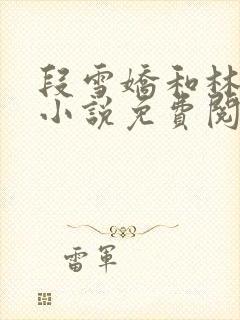 段雪嬌和林
小說免費閱
雷軍